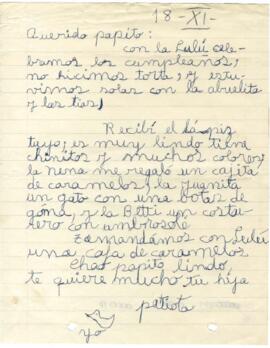 18-XI-
Querido papito:
con la Lulú cele-
bramos los cumpleaños;
no hicimos torta, y estu-
vimos solas con la abuelita
y las tías,
Recibí el lápiz
tuyo; es muy lindo tiene
chinitos y muchos colores;
la nena me regaló un cajita
de caramelos, la Juanita
un gato con una botas de
góma, y la Betti un costu-
rero con
mandámos con Lulú
una caja de caramelos
chao papito lindo
te quiere mucho tu hija
patiota
yo